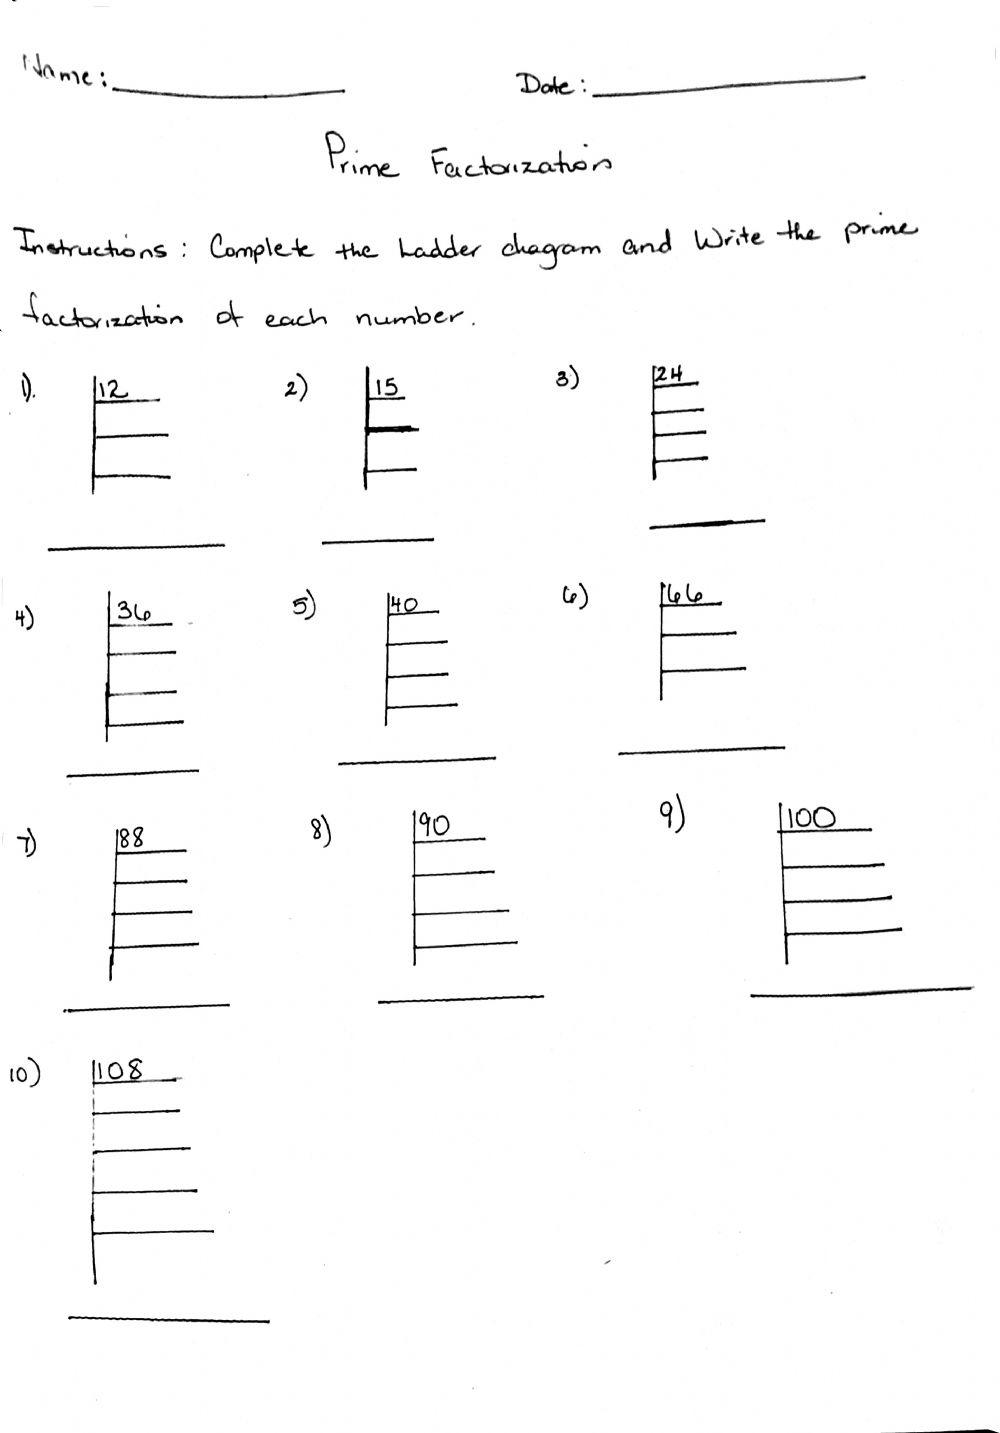 Name: Date:
Prime Factorization
Instructions: Complete the Ladder diagram and Write the prime
factorization of each number.
1). 12 2) 15 3) 24
4) 36 5) 40 6) 66
7) 88 8) 90 9) 100
10) 108